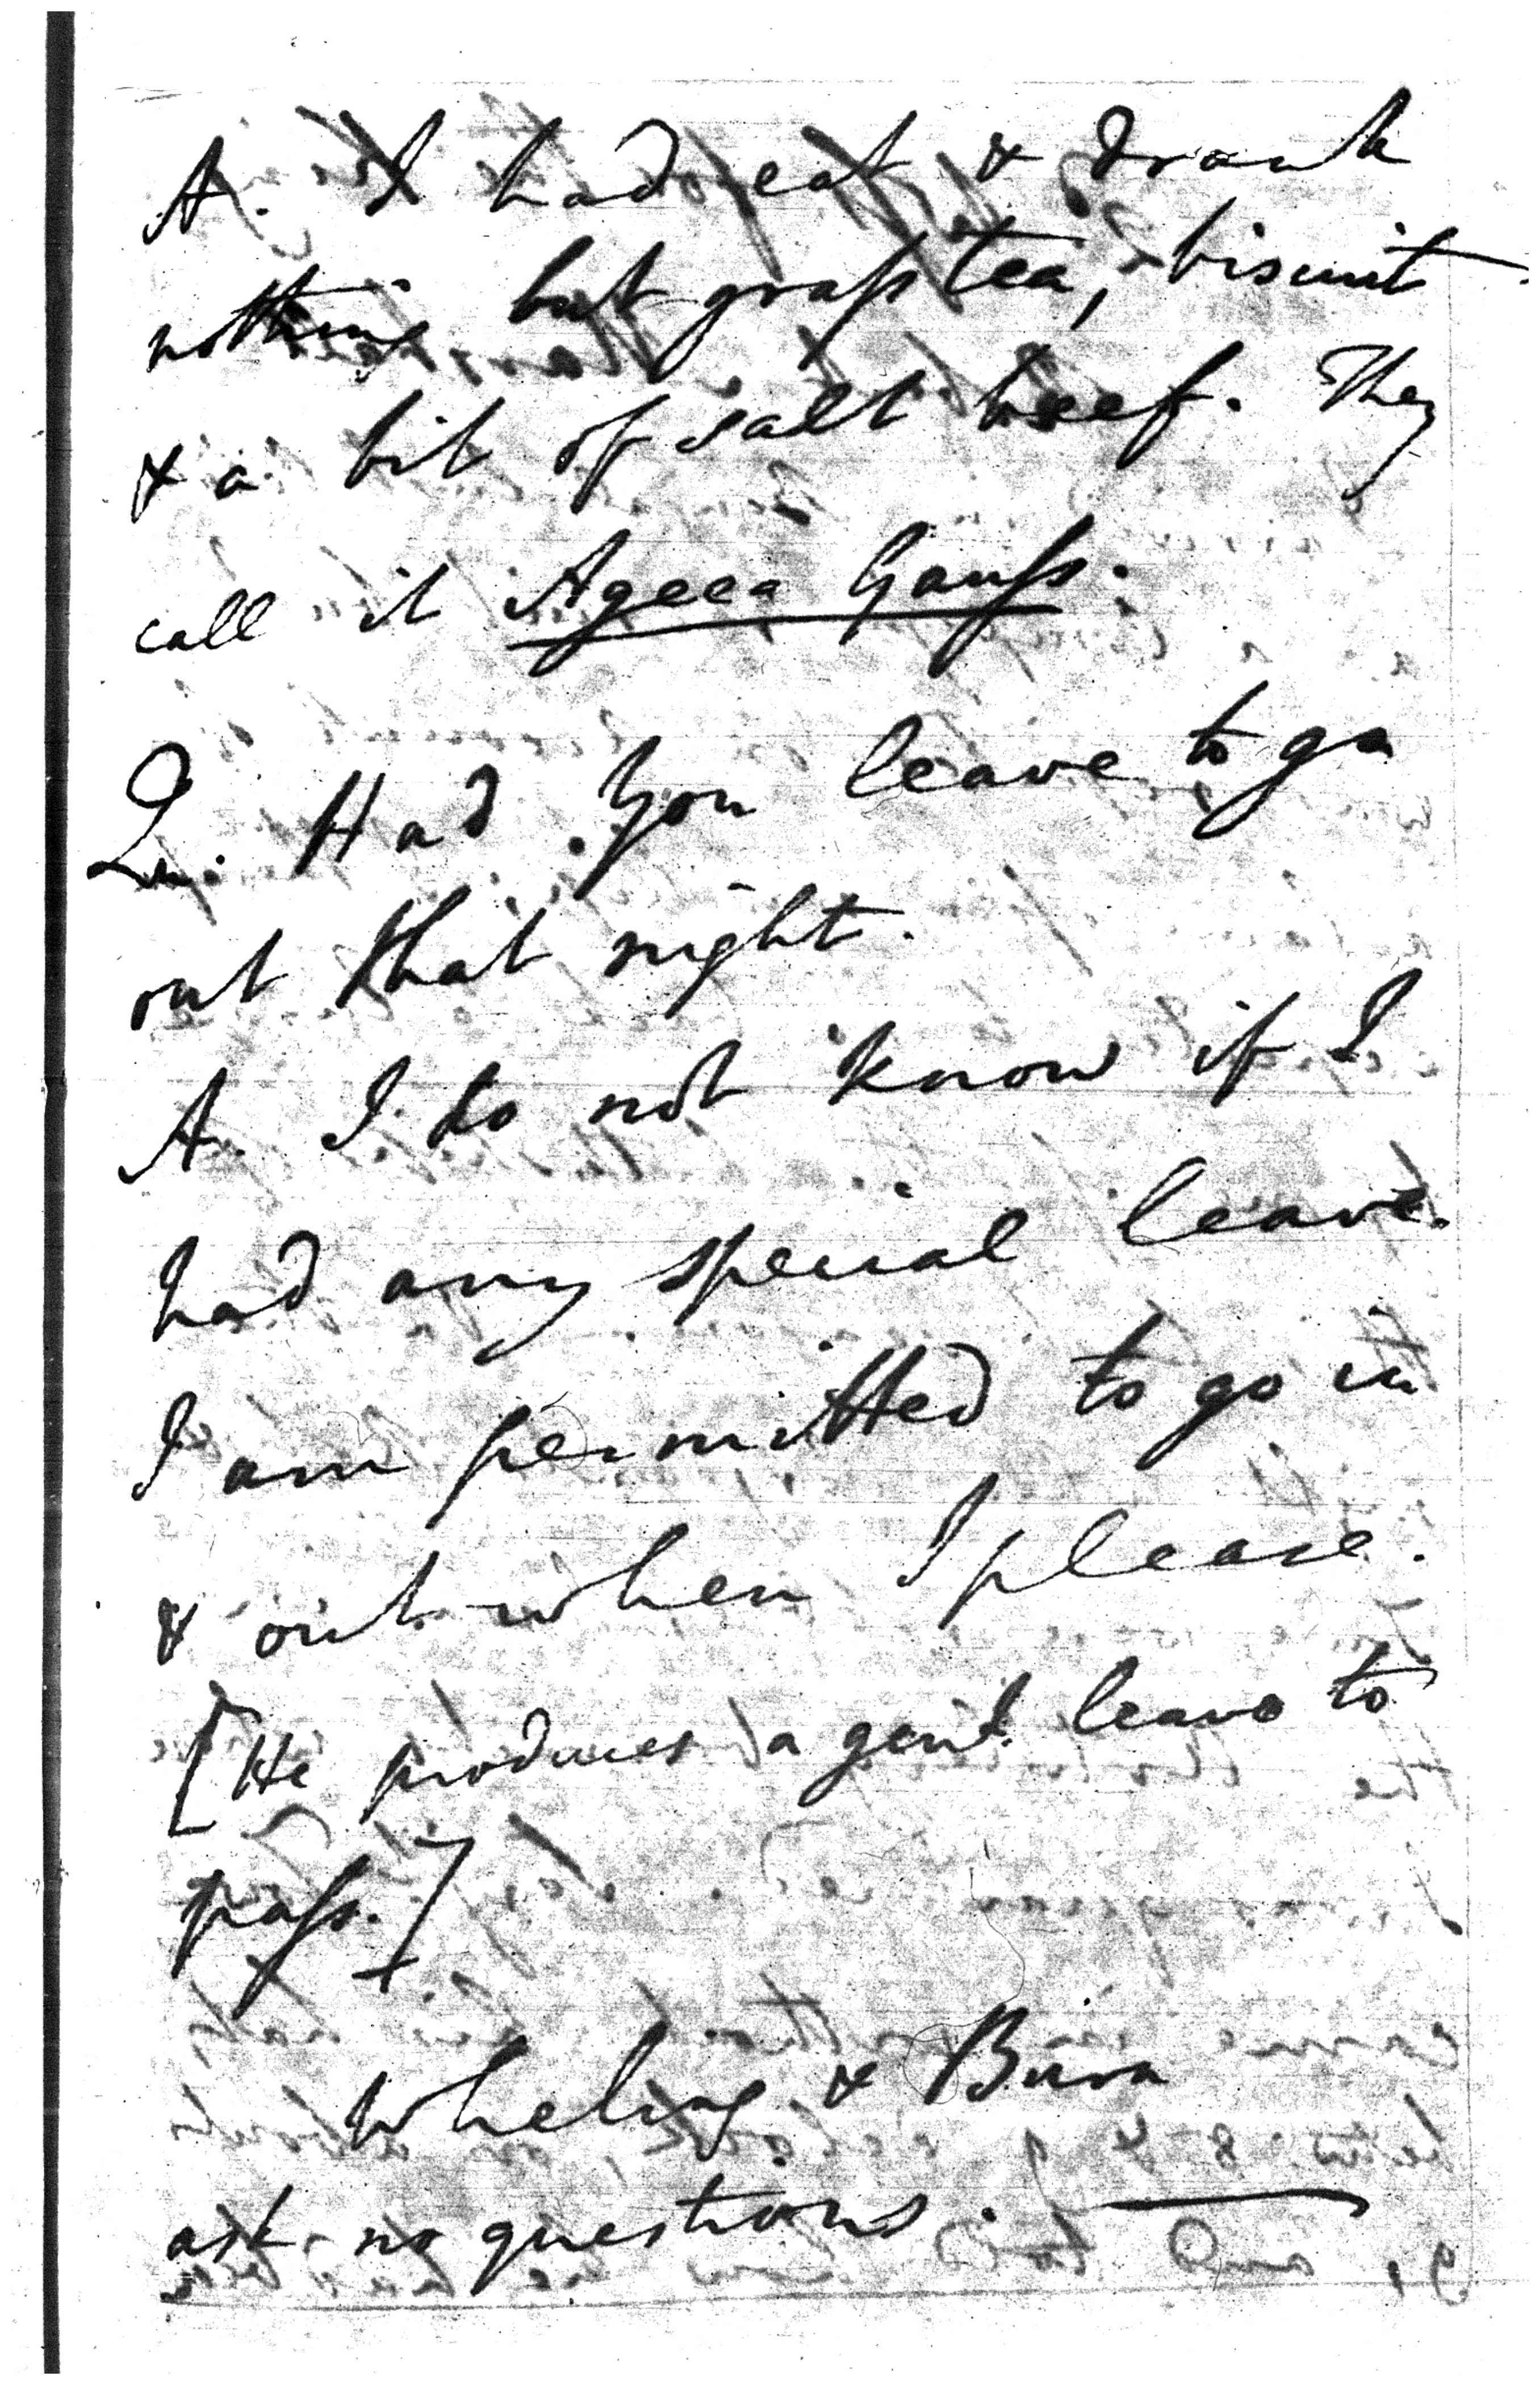 A. I had eat & drank
nothing but grass tea, biscuit
& a bit of salt beef. They
call it Ageea Gauss.
Qn. Had you leave to go
out that night.
A. I do not know if I
had any special leave.
I am permitted to go in
& out when I please.
[He produces a genl. leave to
pass.]
Wheling & Burn
ask no questions.